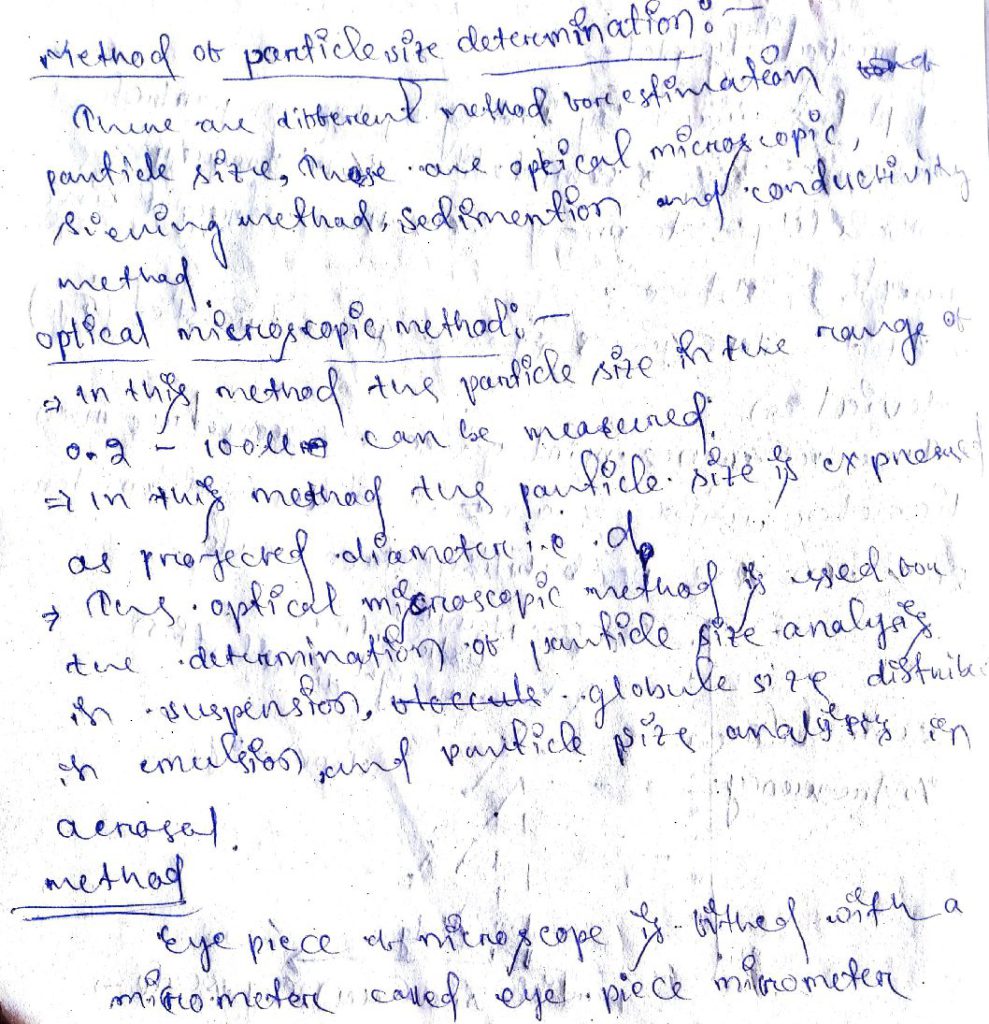 Method of particle size determination:-
There are different method for estimation
particle size, These are optical microscopic,
sieving method, sedimention and conductivity
method.
optical microscopic method:-
⇒ in this method the particle size in the range of
0.2 - 100 can be measured.
⇒ in this method the particle size is express
as projected diameter i.e dp
→ This optical microscopic method is used for
the determination of particle size analysis
in suspension, globule size distrib
in emulsion, and particle size analysis in
aerosol.
method
Eye piece of microscope is fitted with a
micrometer called eye piece micrometer